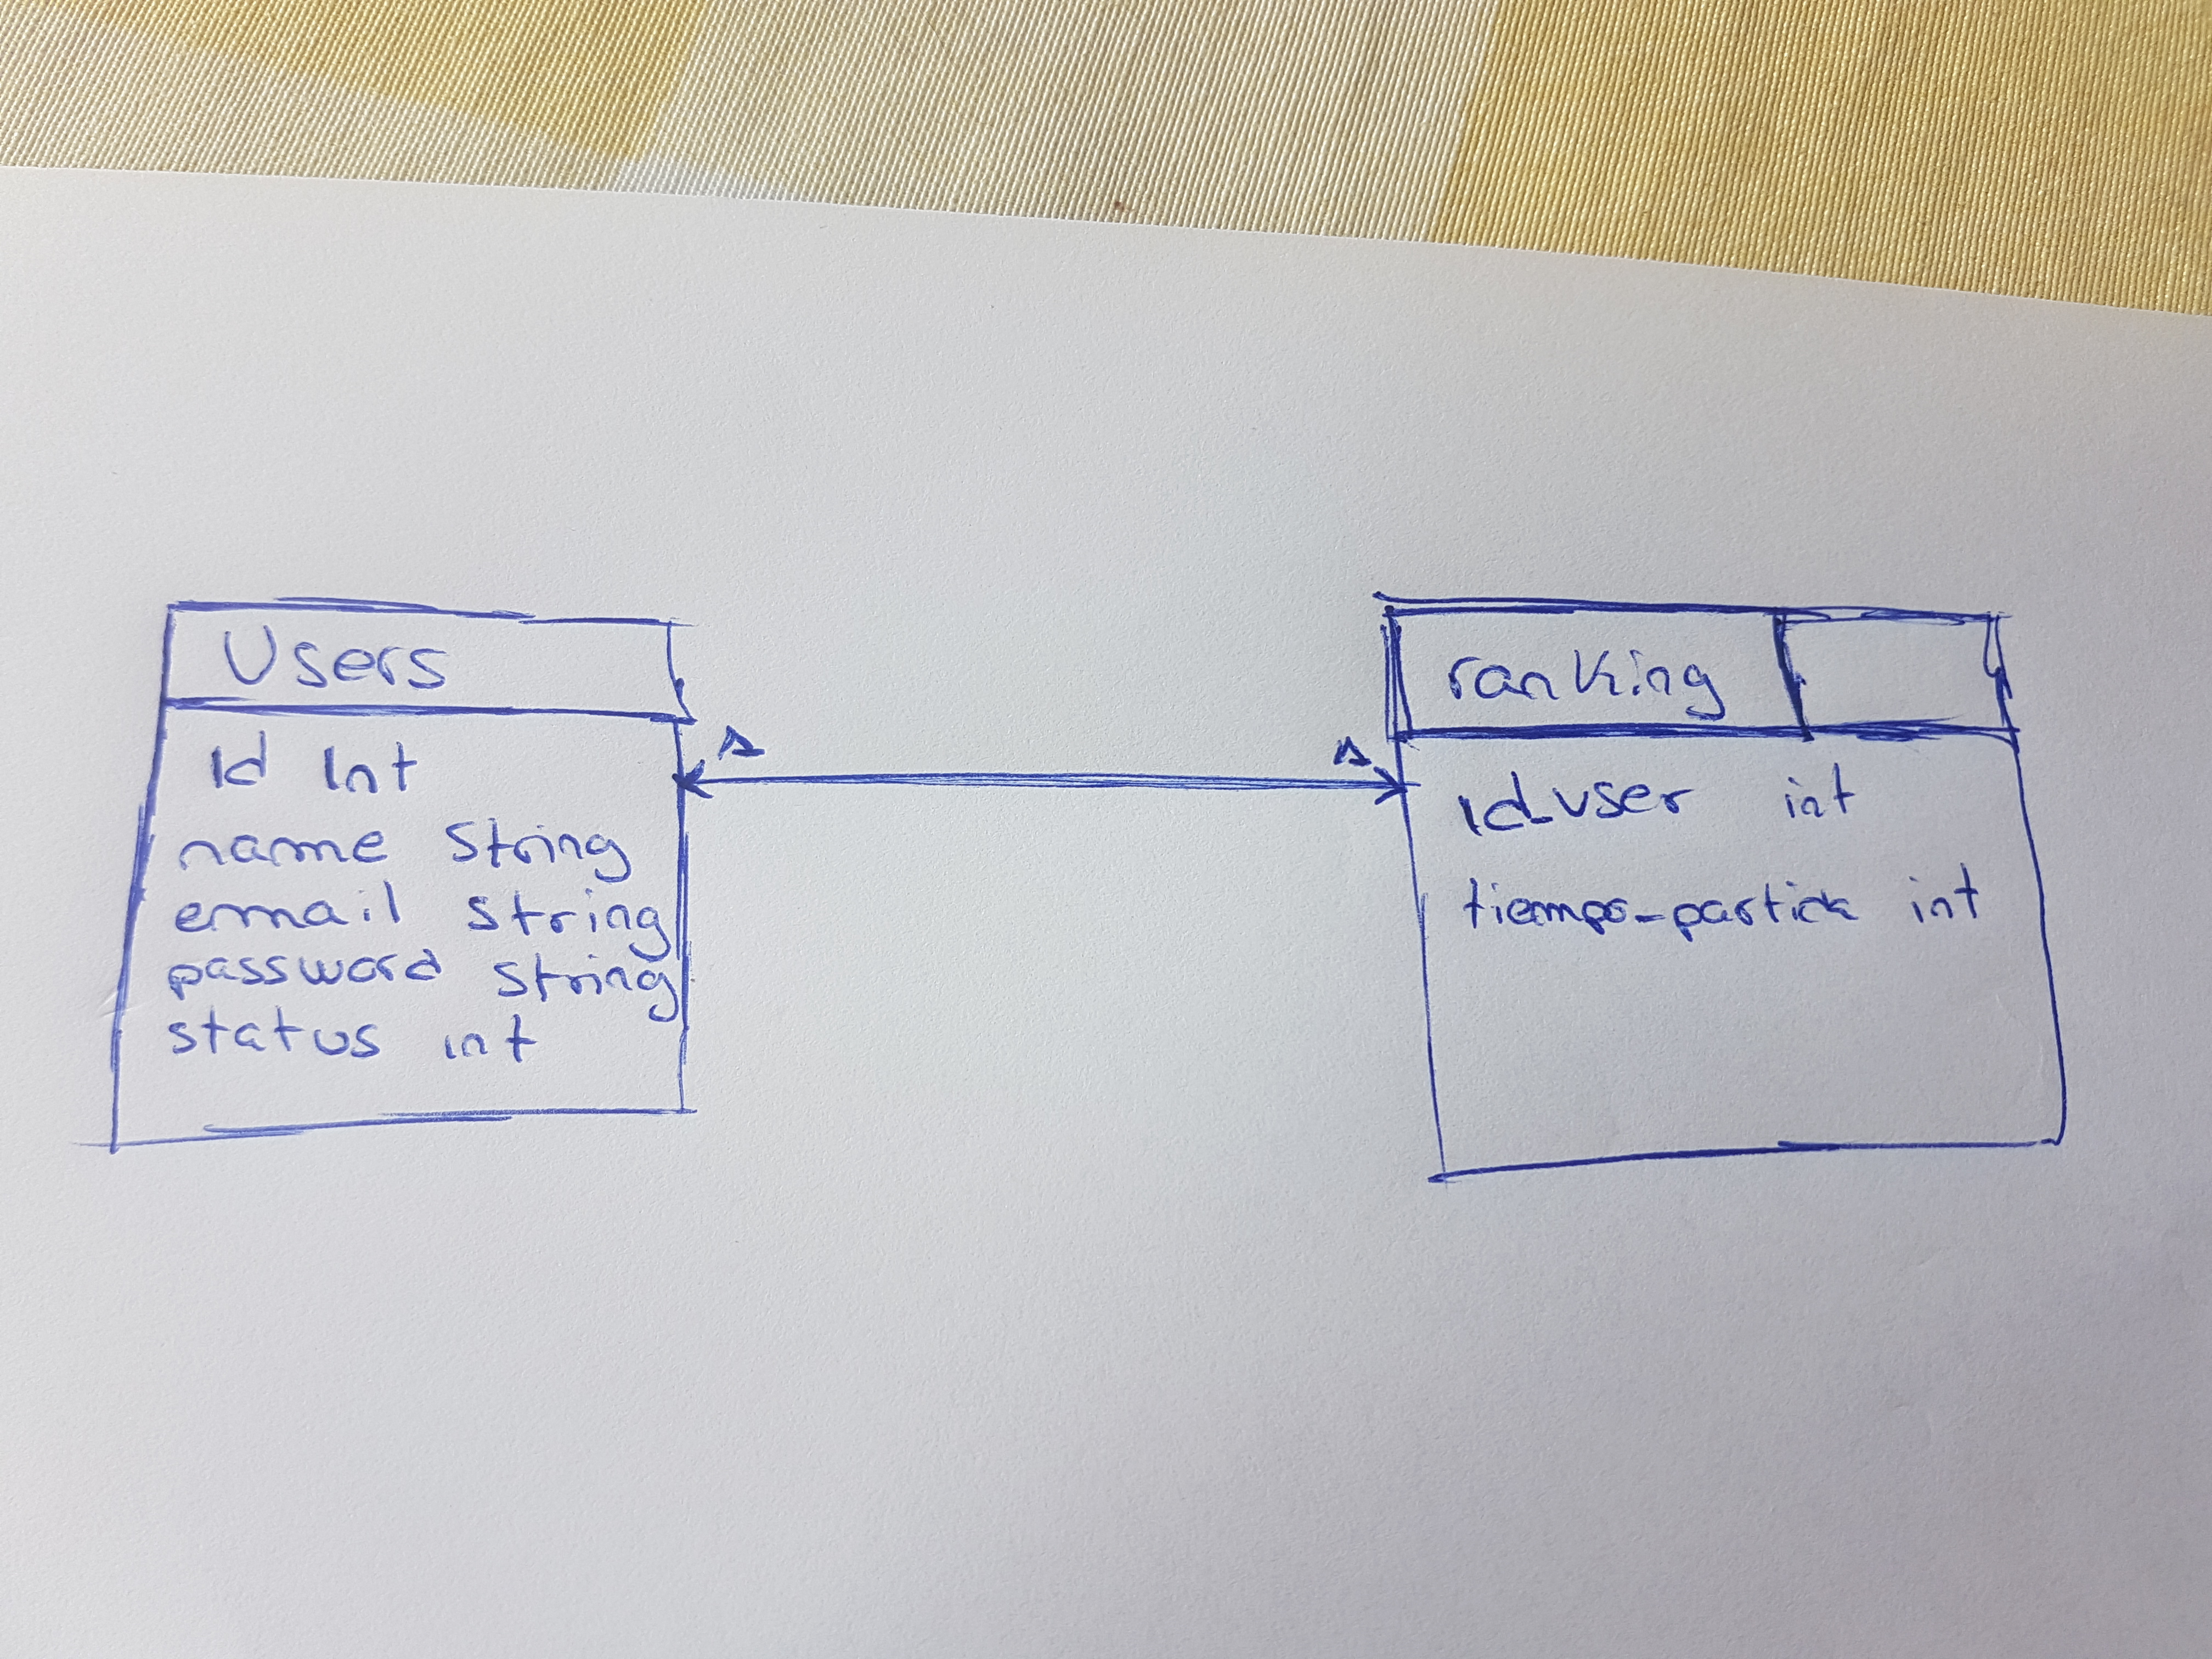 Users
id int
name string
email string
password string
status int
1
1
ranking
id_user int
tiempo-partida int